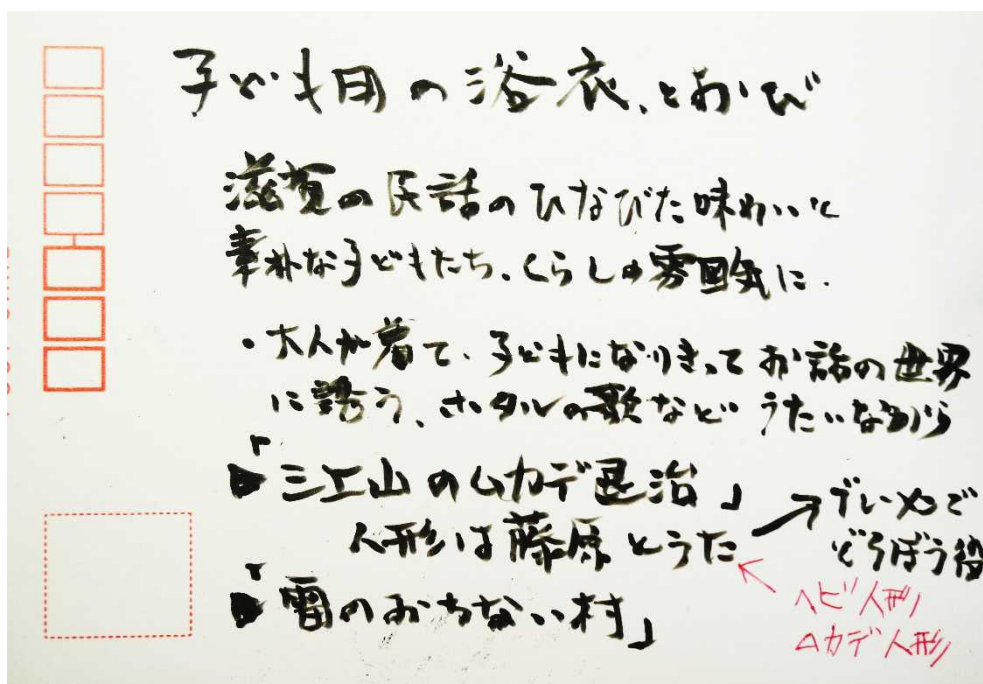 子ども用の浴衣、とおび
滋賀の民話のひなびた味わいと
素朴な子どもたち、くらしの雰囲気に.
・大人が着て、子どもになりきってお話の世界
に誘う、ホタルの歌など うたいながら
▶「三上山のムカデ退治」
人形は藤原とうた
→ブレーメンで
どろぼう役
ヘビ人形
ムカデ人形
▶「雷のおちない村」